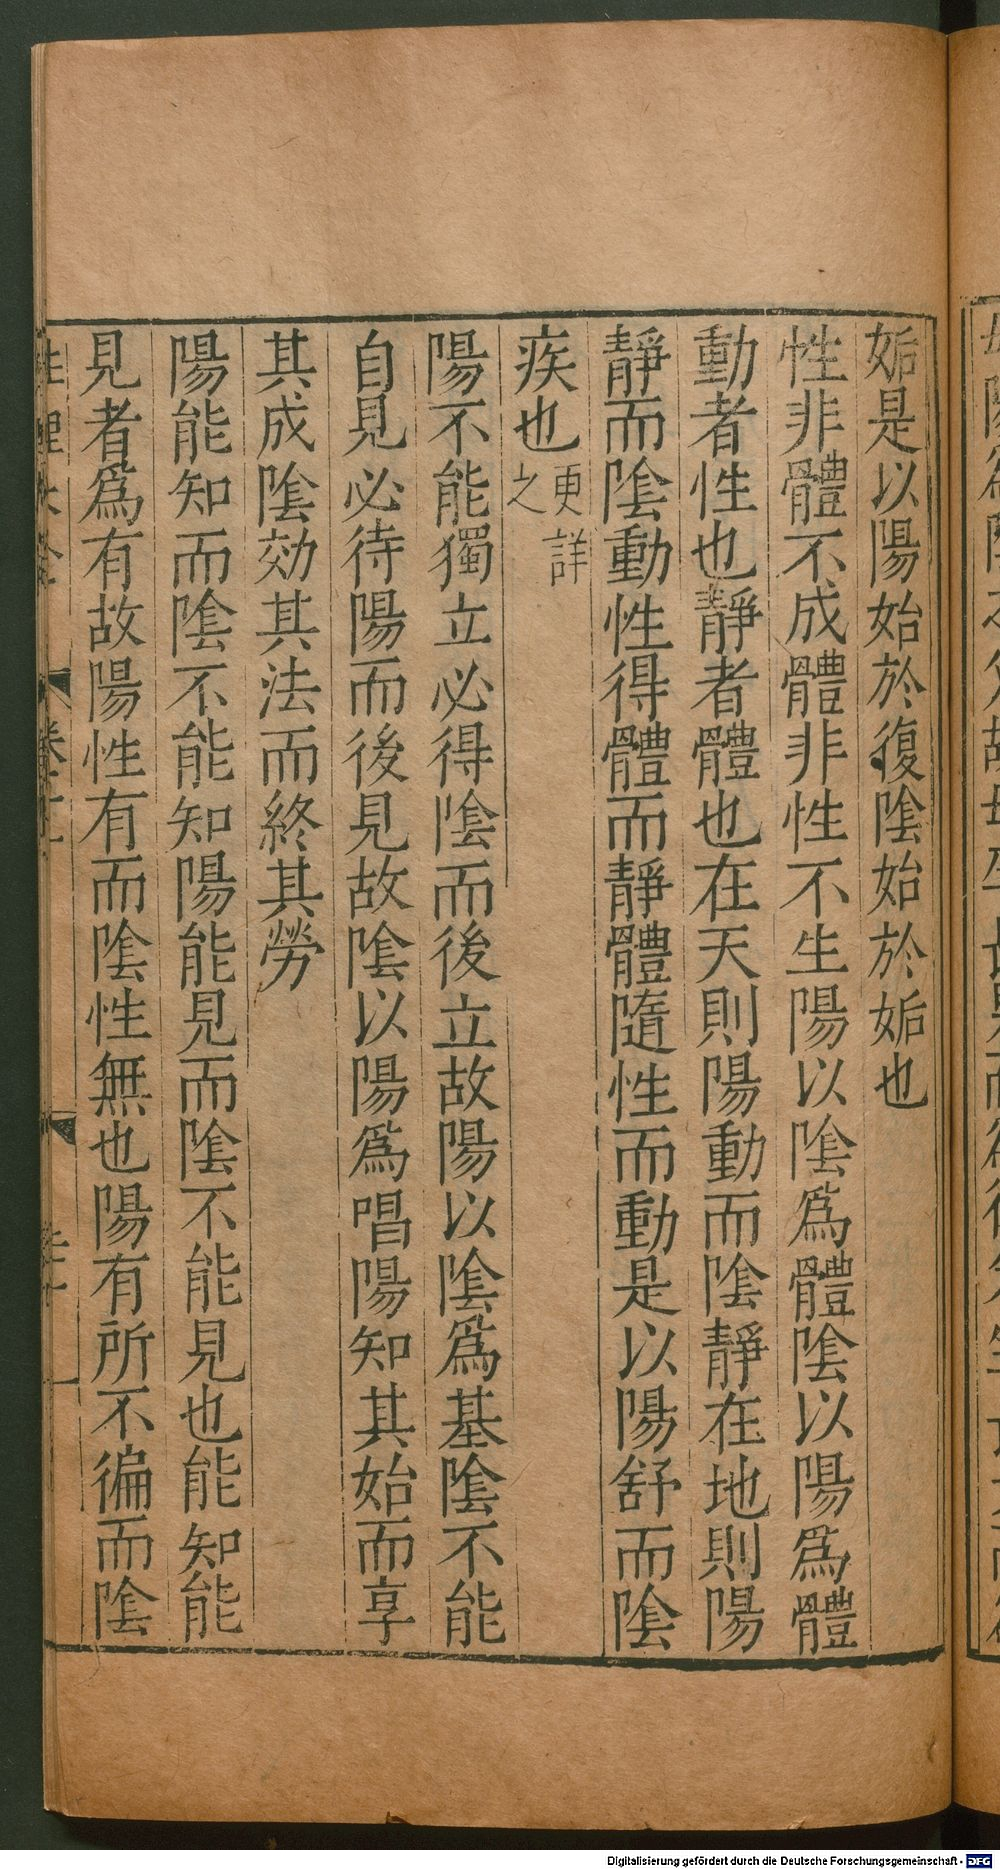 姤是以陽始於復陰始於姤也
性非體不成體非性不生陽以陰爲體陰以陽爲體
動者性也靜者體也在天則陽動而陰靜在地則陽
靜而陰動性得體而靜體隨性而動是以陽舒而陰
疾也更詳之
陽不能獨立必得陰而後立故陽以陰爲基陰不能
自見必待陽而後見故陰以陽爲唱陽知其始而享
其成陰効其法而終其勞
陽能知而陰不能知陽能見而陰不能見也能知能
見者爲有故陽性有而陰性無也陽有所不徧而陰
Digitalisierung gefördert durch die Deutsche Forschungsgemeinschaft - DFG